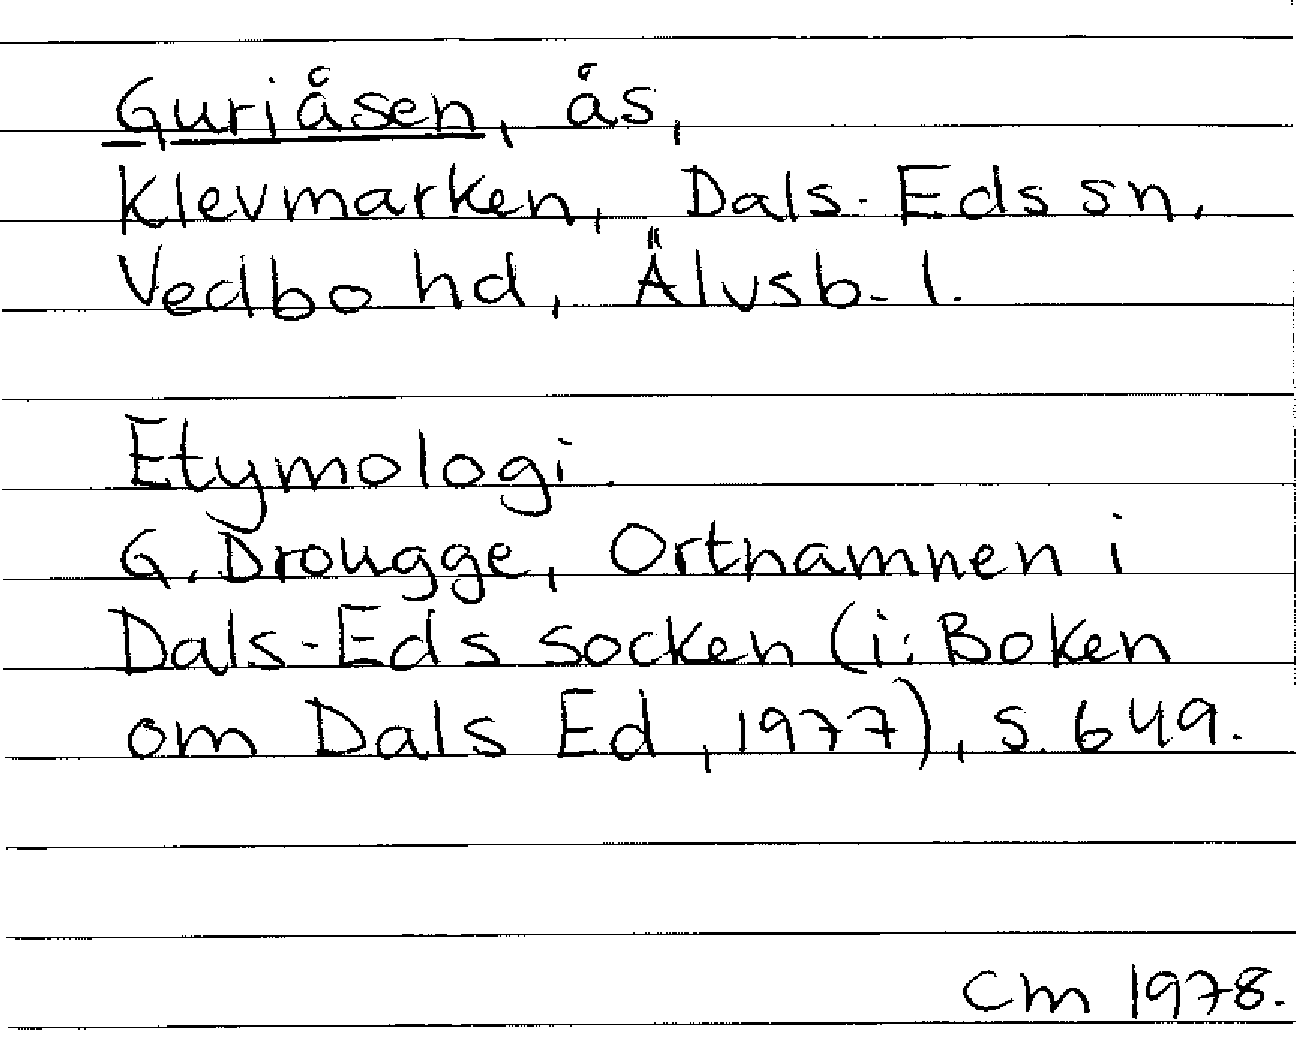 Guriåsen, ås,
Klevmarken, Dals-Eds sn,
Vedbo hd, Älvsb. l.
Etymologi.
G. Drougge, Ortnamnen i
Dals-Eds socken (i: Boken
om Dals Ed, 1977), s. 649.
Cm 1978.